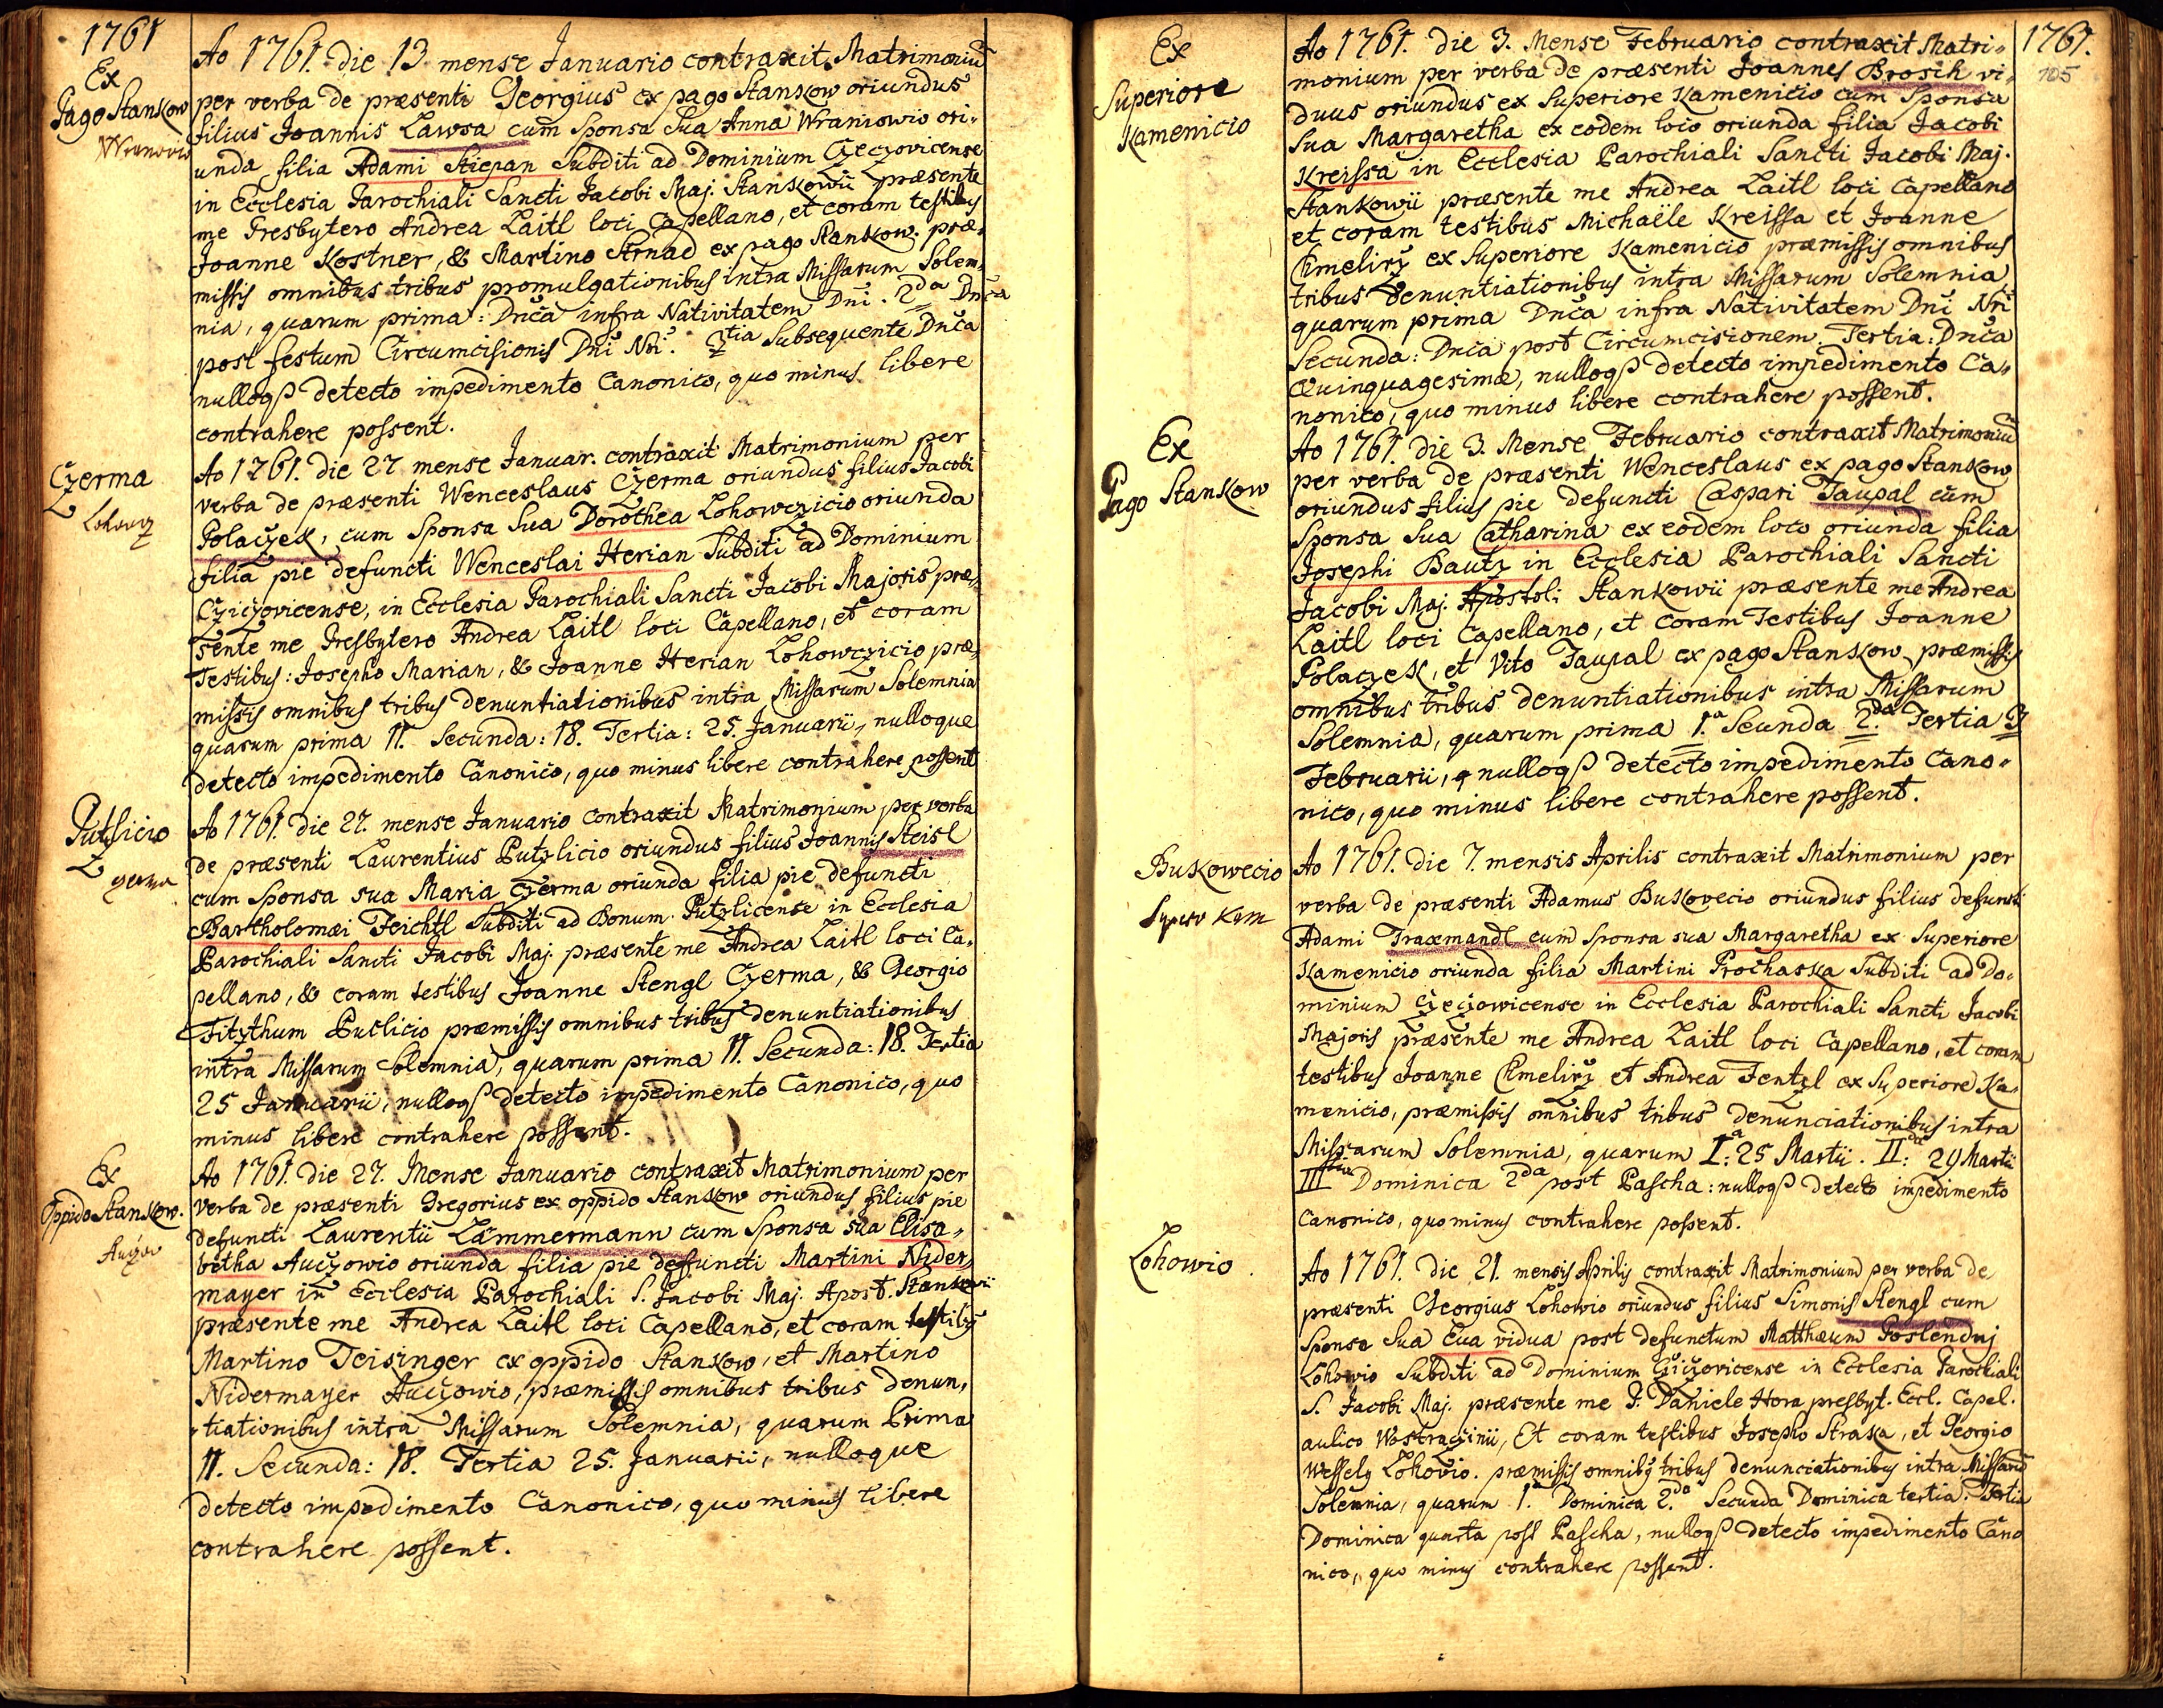 1761
Ex
Pago Stankow
Wranowio
Ao 1761. die 13 mense Januario contraxit Matrimoniũ
per verba de præsenti Georgius ex pago Stankow oriundus
filius Joannis Lawsa cum Sponsa Sua Anna Wraniowio ori-
unda filia Adami Stiepan Subditi ad Dominium Czeczovicense
in Ecclesia Parochiali Sancti Jacobi Maj. Stankowii præsente
me Presbytero Andrea Laitl loci Capellano, et coram testibus
Joanne Kostner, & Martino Arnad ex pago Stankow. præ-
missis omnibus tribus promulgationibus intra Missarum Solem-
nia, quarum prima: Dnĩca infra Nativitatem Dnĩ. 2da Dnĩca
post festum Circumcisionis Dnĩ Nrĩ. 3tia Subsequente Dnĩca
nulloqꝫ detecto impedimento Canonico, quo minus libere
contrahere possent.
Czerma
Lohowcz
Ao 1761. die 27 mense Januar. contraxit Matrimonium per
verba de præsenti Wenceslaus Czerma oriundus filius Jacobi
Polaczek, cum Sponsa Sua Dorothea Lohowczicio oriunda
filia pie defuncti Wenceslai Herian Subditi ad Dominium
Cziczovicense, in Ecclesia Parochiali Sancti Jacobi Majoris præ-
sente me Presbytero Andrea Laitl loci Capellano, et coram
Testibus: Josepho Marian, & Joanne Herian Lohowczicio præ-
missis omnibus tribus denuntiationibus intra Missarum Solemnia
quarum prima 11. Secunda: 18. Tertia: 25. Januarii, nulloque
detecto impedimento Canonico, quo minus libere contrahere possent
Putzlicio
Czerma
Ao 1761. die 27. mense Januario contraxit Matrimonium per verba
de præsenti Laurentius Putzlicio oriundus filius Joannis Steisl
cum Sponsa sua Maria Czerma oriunda filia pie defuncti
Bartholomæi Teichtl Subditi ad Bonum Putzlicense in Ecclesia
Parochiali Sancti Jacobi Maj. præsente me Andrea Laitl loci Ca-
pellano, & coram testibus Joanne Stengl Czerma, & Georgio
Fitzthum Puclicio præmissis omnibus tribus denuntiationibus
intra Missarum Solemnia, quarum prima 11. Secunda: 18. Tertia
25 Januarii, nulloqꝫ detecto impedimento Canonico, quo
minus libere contrahere possent.
Ex
Oppido Stankow.
Auczow
Ao 1761. die 27. Mense Januario contraxit Matrimonium per
verba de præsenti Gregorius ex oppido Stankow oriundus filius pie
defuncti Laurentii Lämmermann cum Sponsa sua Elisa-
betha Auczowio oriunda filia pie defuncti Martini Nider-
mayer in Ecclesia Parochiali S. Jacobi Maj. Apost. Stankovii
præsente me Andrea Laitl loci Capellano, et coram testibus
Martino Teisinger ex oppido Stankow, et Martino
Nidermayer Auczowio, præmissis omnibus tribus denun-
tiationibus intra Missarum Solemnia, quarum Prima
11. Secunda: 18. Tertia 25. Januarii, nulloque
detecto impedimento Canonico, quo minus libere
contrahere possent.
1761.
105
Ex
Superiore
Kamenicio
Ao 1761. die 3. Mense Februario contraxit Matri-
monium per verba de præsenti Joannes Brosik vi-
duus oriundus ex Superiore Kamenicio cum Sponsa
Sua Margaretha ex eodem loco oriunda filia Jacobi
Kreissa in Ecclesia Parochiali Sancti Jacobi Maj.
Stankowii præsente me Andrea Laitl loci Capellano
et coram testibus Michaële Kreissa et Joanne
Chmelirz ex Superiore Kamenicio præmissis omnibus
tribus denuntiationibus intra Missarum Solemnia,
quarum prima Dnĩca infra Nativitatem Dnĩ Nrĩ
Secunda: Dnĩca post Circumcisionem. Tertia: Dnĩca
Quinquagesimæ, nulloqꝫ detecto impedimento Ca-
nonico, quo minus libere contrahere possent.
Ex
Pago Stankow
Ao 1761. die 3. Mense Februario contraxit Matrimoniũ
per verba de præsenti Wenceslaus ex pago Stankow
oriundus filius pie defuncti Caspari Taupal cum
Sponsa Sua Catharina ex eodem loco oriunda filia
Josephi Bautz in Ecclesia Parochiali Sancti
Jacobi Maj. Apostoli Stankowii præsente me Andrea
Laitl loci Capellano, et coram Testibus Joanne
Polaczek, et Vito Taupal ex pago Stankow præmissis
omnibus tribus denuntiationibus intra Missarum
Solemnia, quarum prima 1.a Seunda 2.da Tertia 3
Februarii, nulloqꝫ detecto impedimento Cano-
nico, quo minus libere contrahere possent.
Bukowecio
Super Kam
Ao 1761. die 7. mensis Aprilis contraxit Matrimonium per
verba de præsenti Adamus Bukovecio oriundus filius defuncti
Adami Traxmandl cum Sponsa sua Margaretha ex Superiore
Kamenicio oriunda filia Martini Prochaska Subditi ad Do-
minium Czeczowicense in Ecclesia Parochiali Sancti Jacobi
Majoris præsente me Andrea Laitl loci Capellano, et coram
testibus Joanne Chmelirz et Andrea Jentzl ex Superiore Ka-
menicio, præmissis omnibus tribus denunciationibus intra
Missarum Solemnia, quarum Ia: 25 Martii. IIda: 29 Martii
IIItia Dominica 2da post Pascha: nulloqꝫ detecto impedimento
Canonico, quominus contrahere possent.
Lohowio
Ao 1761. die 21. mensis Aprilis contraxit Matrimonium per verba de
præsenti Georgius Lohowio oriundus filius Simonis Stengl cum
Sponsa Sua Eva vidua post defunctum Matthæum Poslendnj
Lohowio Subditi ad Dominium Cziczovicense in Ecclesia Parochiali
S. Jacobi Maj. præsente me P. Daniele Hora presbyt. Eccl. Capel.
aulico Wostraczinii, Et coram testibus Josepho Straka, et Georgio
Wessely Lohovio. præmissis omnibus tribus denunciationibus intra Missarũ
Solemnia, quarum 1. Dominica 2.da Secunda Dominica tertia. Tertia
Dominica quarta post Pascha, nulloqꝫ detecto impedimento Cano
nico, quo minus contrahere possent.